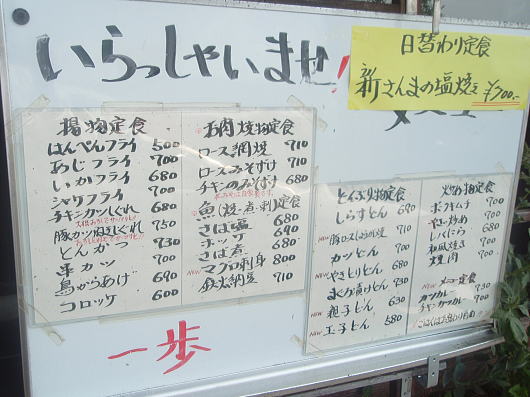 いらっしゃいませ!
日替わり定食
新さんまの塩焼き ¥700.-
揚物定食
はんぺんフライ 500
あじフライ 700
いかフライ 680
シャリフライ 700
チキンカツおしぐれ 680
豚カツねぎしぐれ 750
とんカツ 930
串カツ 700
鳥からあげ 690
コロッケ 600
お肉焼物定食
ロース網焼 710
ロースみそづけ 710
チキンのみそづけ 680
魚(焼・煮・刺)定食
さば塩 680
ホッケ 690
さば煮 680
NEW マグロ刺身 800
鉄火納豆 710
どんぶり物定食
しらすどん 690
NEW 豚ロースしょうが焼
カツどん 700
NEW やきとりどん 680
まぐろ漬けどん
NEW 親子どん 630
NEW 玉子どん 580
炒め物定食
ポークキムチ 700
やさい炒め
レバにら
和風焼き 700
焼肉
カツカレー 930
チキンカツカレー
一歩